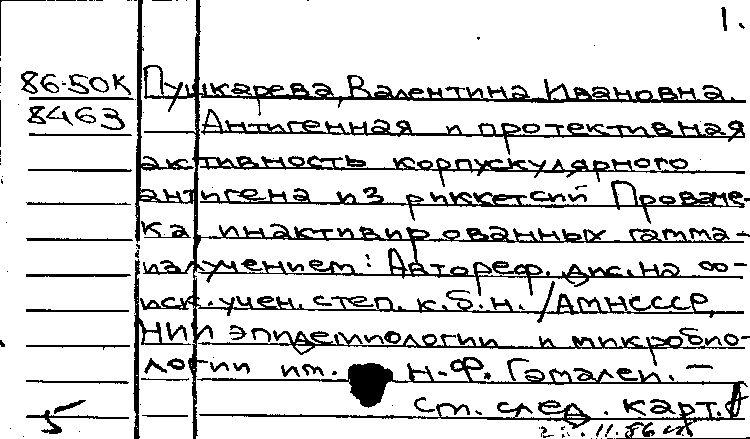 1.
86-50К Пушкарева, Валентина Ивановна.
8463 Антигенная и протективная
активность корпускулярного
антигена из риккетсий Проваче-
ка, инактивированных гамма-
излучением: Автореф. дис. на со-
иск. учен. степ. к.б.н. / АМН СССР,
НИИ эпидемиологии и микробио-
логии им. Н.Ф. Гамалеи. —
5 См. след. карт.
.11.86